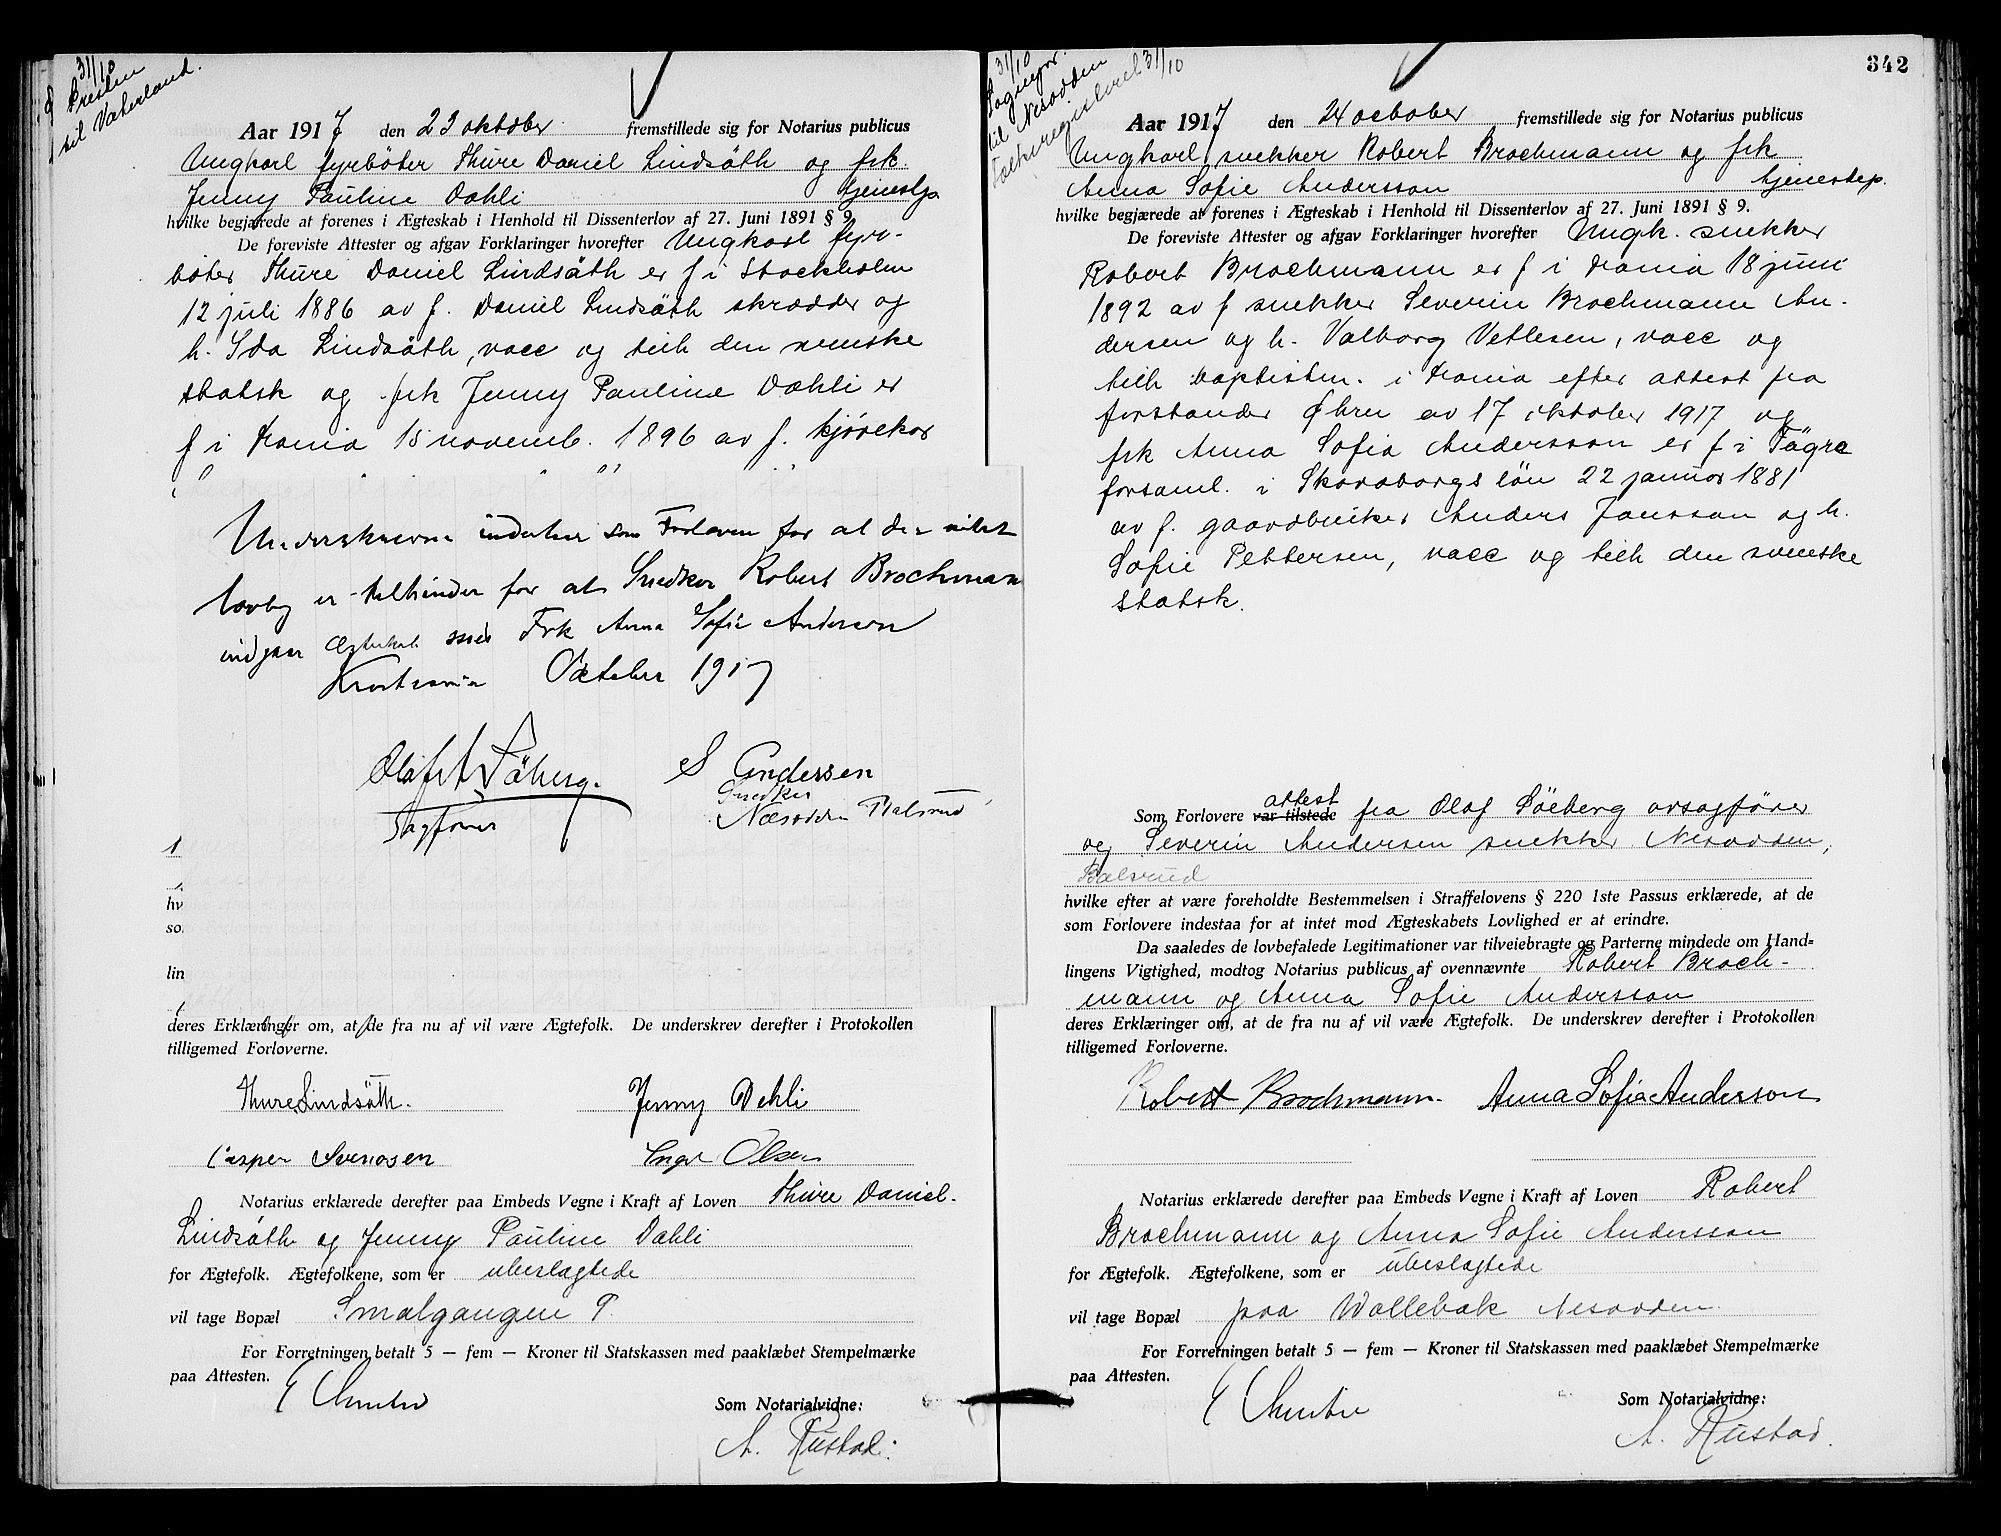 31/10
Presten
til Vaterland.
Aar 1917 den 23 oktober fremstillede sig for Notarius publicus
Ungkarl fyrböter Thure Daniel Lindsäth og frk.
Jenny Pauline Dahli tjenestp
hvilke begjærede at forenes i Ægteskab i Henhold til Dissenterlov af 27. Juni 1891 § 9.
De foreviste Attester og afgav Forklaringer hvorefter Ungkarl fyr-
böter Thure Daniel Lindsäth er f i Stockholm
12 juli 1886 av f. Daniel Lindsäth skrædder og
h. Ida Lindsäth, vacc og tilh den svenske
statsk og frk Jenny Pauline Dahli er
f i Krania 15 novemb. 1896 av f. kjørekar
Underskrevne indestaar som Forlovere for at der intet
lovlig er til hinder for at Snedker Robert Brochmann
indgaar Ægteskab med Frk Anna Sofie Anderson
Kristiania October 1917
Olaf Söberg. S Andersen
Sagfører Snedker
Næsodden Balsrud
hv
so
lin
deres Erklæringer om, at de fra nu af vil være Ægtefolk. De underskrev derefter i Protokollen
tilligemed Forloverne.
Thure Lindsäth. Jenny Dehli
Casper Svenosen Inga Olsen
Notarius erklærede derefter paa Embeds Vegne i Kraft af Loven Thure Daniel
Lindsäth og Jenny Pauline Dahli
for Ægtefolk. Ægtefolkene, som er ubeslagtede
vil tage Bopæl Smalgangen 7.
For Forretningen betalt 5 — fem — Kroner til Statskassen med paaklæbet Stempelmærke
paa Attesten.
Som Notarialvidne:
A. Rustad.
342
31/10
Sognepr.
til Nesodden
Folkeregisteret 31/10
Aar 1917 den 24 october fremstillede sig for Notarius publicus
Ungkarl snekker Robert Brochmann og frk
Anna Sofie Andersson tjenestep.
hvilke begjærede at forenes i Ægteskab i Henhold til Dissenterlov af 27. Juni 1891 § 9.
De foreviste Attester og afgav Forklaringer hvorefter Ungk. snekker
Robert Brochmann er f i Krania 18 juni
1892 av f snekker Severin Brochmann An-
dersen og h. Valborg Vetlesen, vacc og
tilh baptistm. i Krania efter attest fra
forstander Øhrn av 17 oktober 1917 og
frk Anna Sofia Andersson er f i Fägre
forsaml. i Skaraborgs län 22 januar 1881
av f. gaardbruker Anders Jansson og h.
Sofie Pettersen, vacc og tilh den svenske
statsk.
attest
Som Forlovere var tilstede fra Olaf Söeberg orsagfører
og Severin Andersen snekker Nesodden,
Balsrud
hvilke efter at være foreholdte Bestemmelsen i Straffelovens § 220 1ste Passus erklærede, at de
som Forlovere indestaa for at intet mod Ægteskabets Lovlighed er at erindre.
Da saaledes de lovbefalede Legitimationer var tilveiebragte og Parterne mindede om Hand=
lingens Vigtighed, modtog Notarius publicus af ovennævnte Robert Broch-
mann og Anna Sofie Andersson
deres Erklæringer om, at de fra nu af vil være Ægtefolk. De underskrev derefter i Protokollen
tilligemed Forloverne.
Robert Brochmann. Anna Sofia Anderson
Notarius erklærede derefter paa Embeds Vegne i Kraft af Loven Robert
Brochmann og Anna Sofie Andersson
for Ægtefolk. Ægtefolkene, som er ubeslagtede
vil tage Bopæl paa Wollebæk Nesodden
For Forretningen betalt 5 — fem — Kroner til Statskassen med paaklæbet Stempelmærke
paa Attesten.
Som Notarialvidne:
A. Rustad.